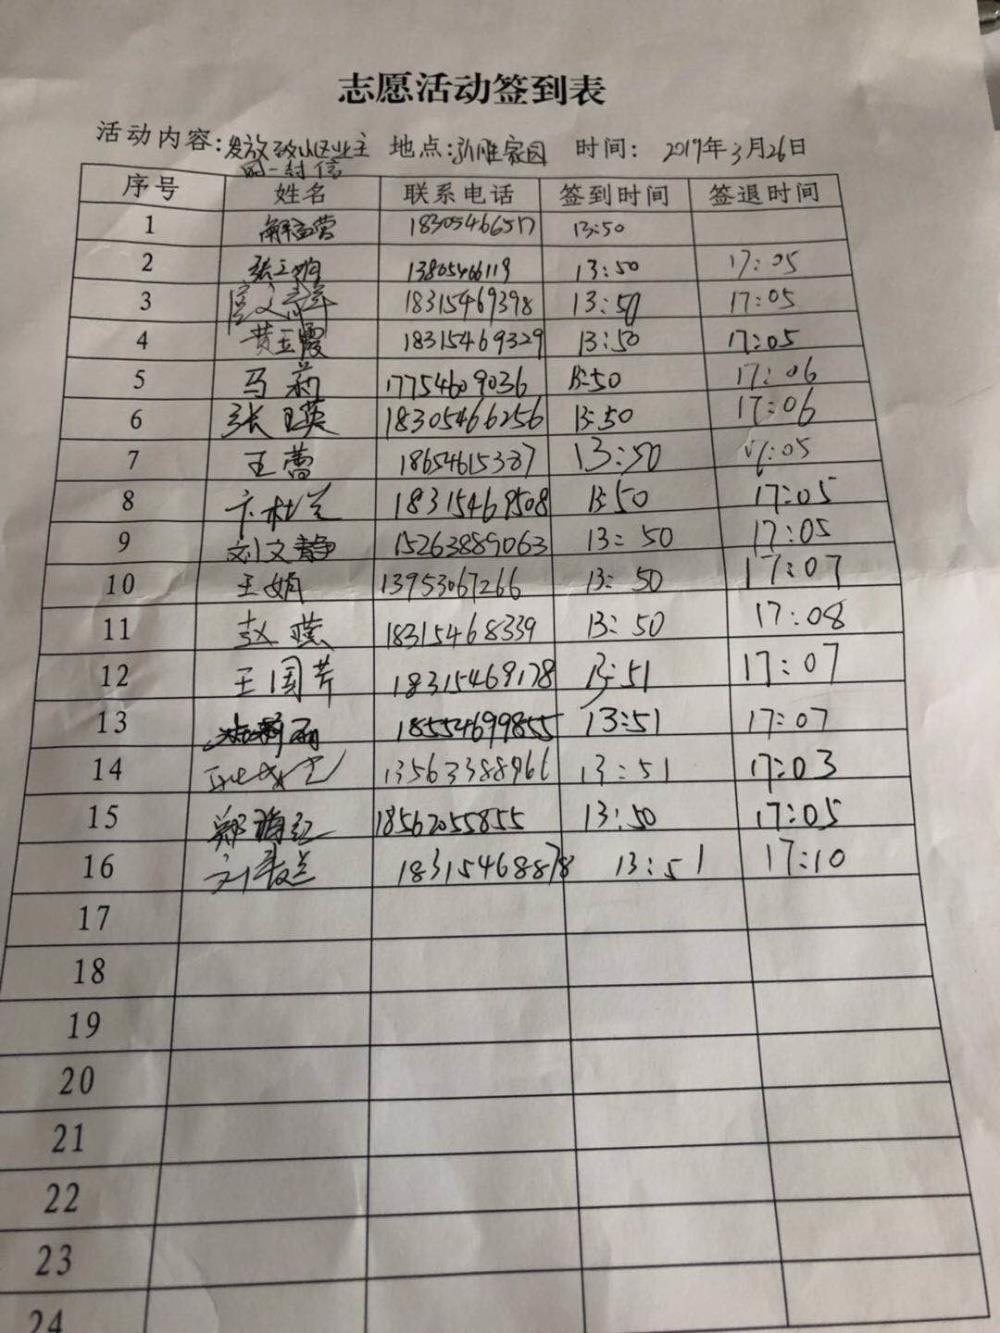 志愿活动签到表
活动内容:发放致小区业主 地点:弘雅家园 时间: 2019年3月26日
的一封信
序号 姓名 联系电话 签到时间 签退时间
1 18305466517 13:50
2 13805466119 13:50 17:05
3 18315469398 13:50 17:05
4 黄玉霞 18315469329 13:50 17:05
5 马莉 17754609036 13:50 17:06
6 张英 18305466256 13:50 17:06
7 王蕾 18654615337 13:50 17:05
8 18315469508 13:50 17:05
9 刘文静 15263889063 13:50 17:05
10 王娟 13953067266 13:50 17:07
11 赵 18315468339 13:50 17:08
12 王国芳 18315469178 13:51 17:07
13 18554699855 13:51 17:07
14 13563388966 13:51 17:03
15 郑海红 18562055855 13:50 17:05
16 18315468878 13:51 17:10
17
18
19
20
21
22
23
24